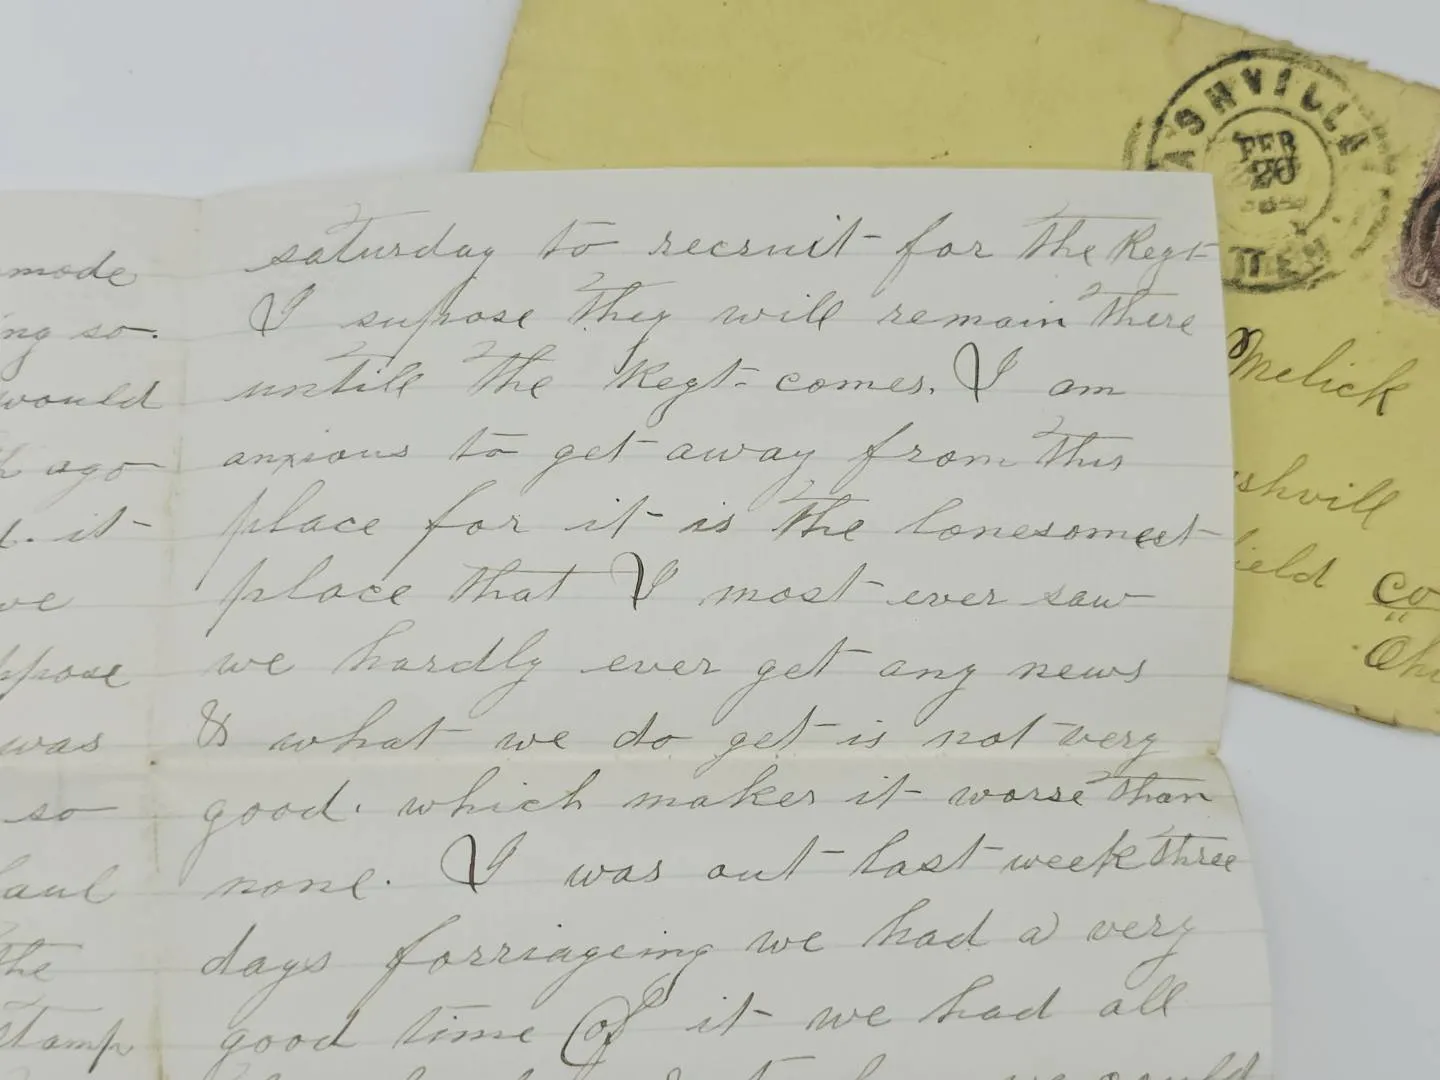 mode
ng so.
would
ago
it
we
ppose
was
so
haul
the
stamp
saturday to recruit for the Regt
I supose they will remain there
untill the Regt comes. I am
anxious to get away from this
place for it is the lonesomest
place that I most ever saw
we hardly ever get any news
& what we do get is not very
good. which makes it worse than
none. I was out last week three
days forriageing we had a very
good time of it we had all
NASHVILLE
FEB
20
Melick
shvill
ield Co